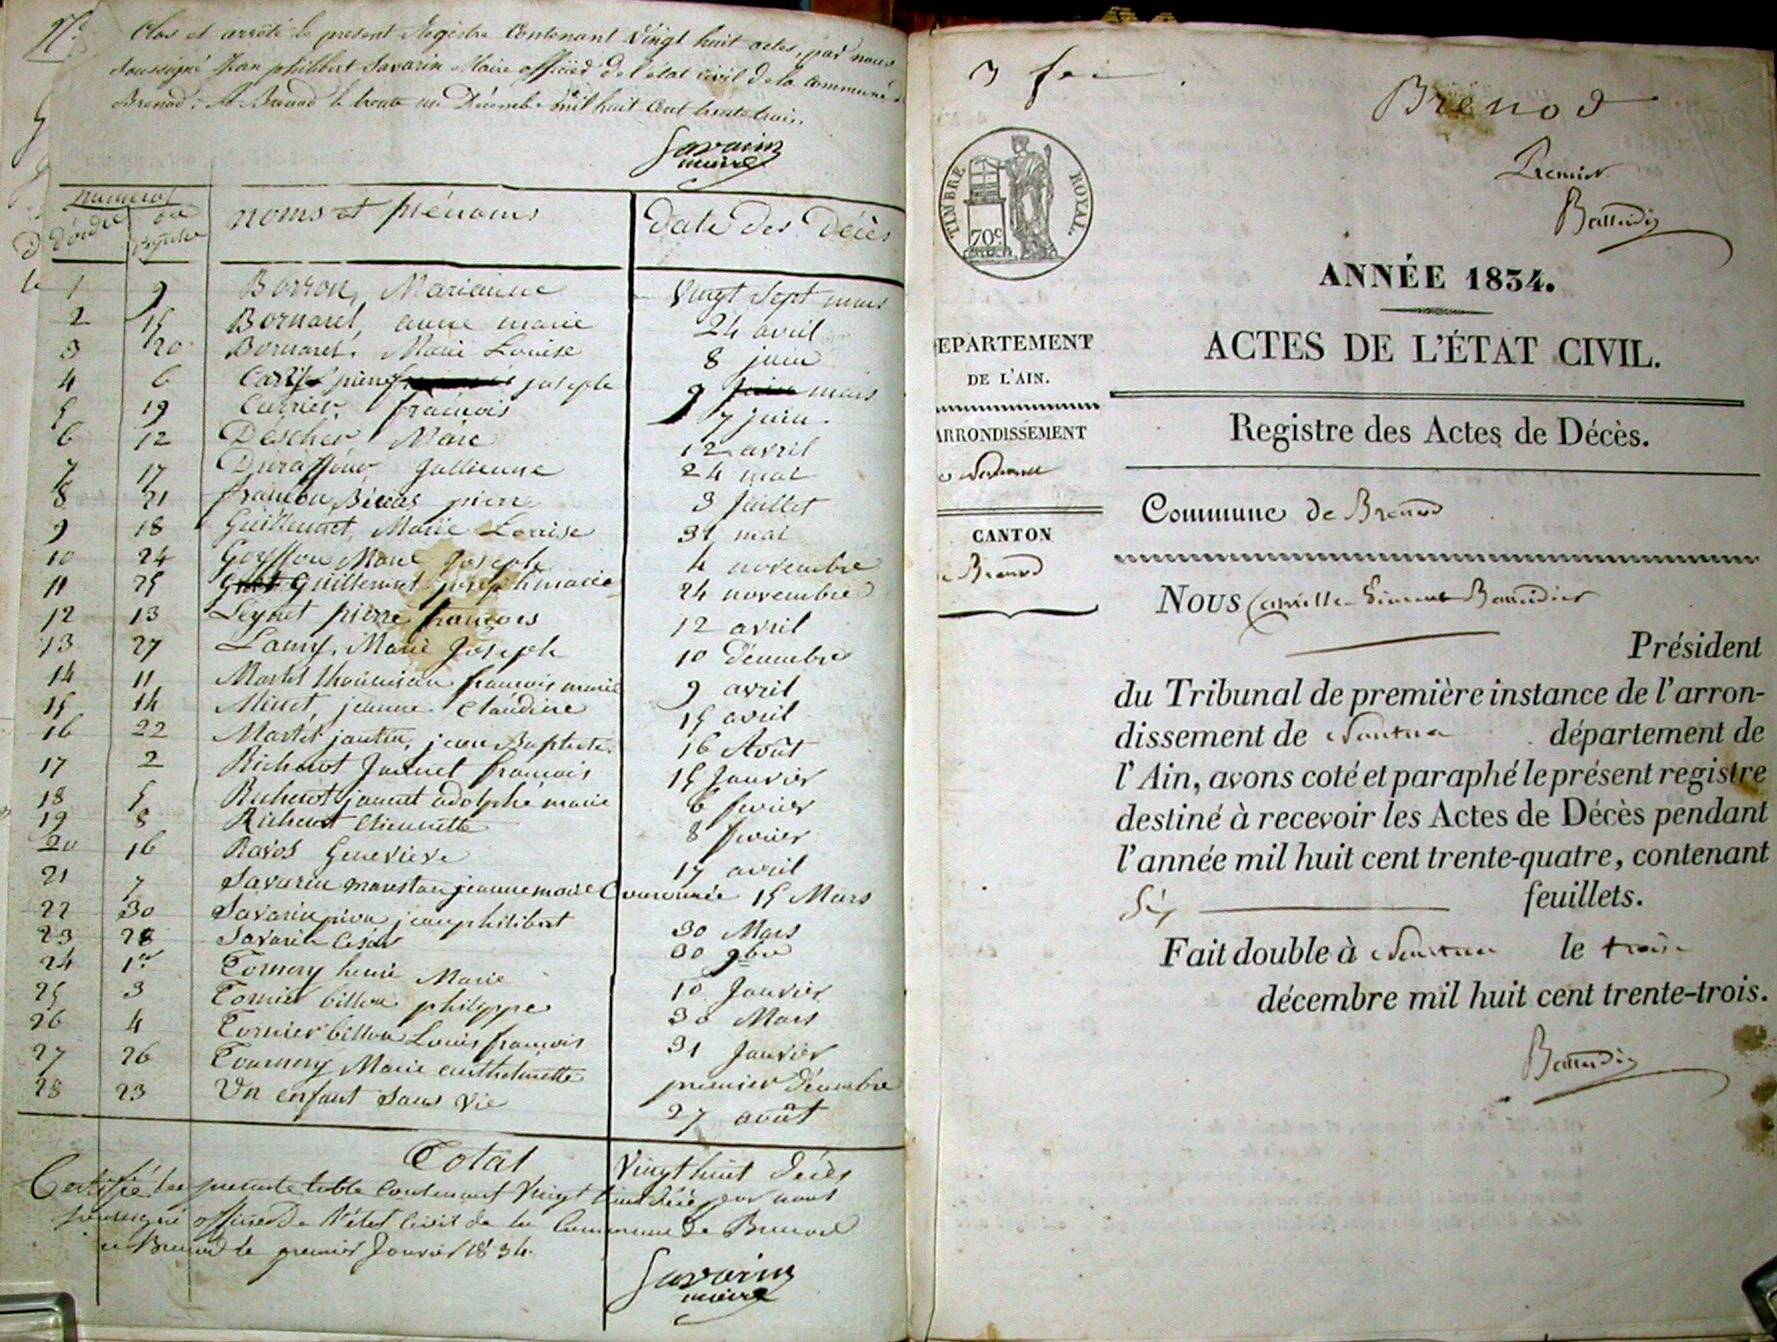 Clos et arrêté le present Registre Contenant Vingt huit actes, par nous
soussigné Jean philibert Savarin Maire officier de l'état civil de la commune de
Brenod. A Brenod le trente un Décembre mil huit cent trente trois.
Savarin
maire
numero
d'ordre du Registre noms et prénoms date des Décès
1 9 Borron, Marianne Vingt sept mars
2 15 Bornarel, anne marie 24 avril
3 20 Bornarel, Marie Louise 8 juin
4 6 pierre joseph 9 mars
5 19 Carrier, françois 7 juin
6 12 Descher Marie 12 avril
7 17 Duraffour Jullienne 24 mai
8 21 pierre 3 Juillet
9 18 Guillermet, Marie Louise 31 mai
10 24 Goyffon Marie Joseph 4 novembre
11 25 Guillermet joseph marie 24 novembre
12 13 Leynet pierre françois 12 avril
13 27 Lamy, Marie Joseph 10 Décembre
14 11 Martel françois marie 9 avril
15 14 Minet, jeanne Claudine 15 avril
16 22 Martel jantin, jean Baptiste 16 Août
17 2 Richerot Jacquet françois 15 Janvier
18 5 Richerot jacquet adolphe marie 6 fevrier
19 8 Richerot Etiennette 8 fevrier
20 16 Ravos Genevieve 17 avril
21 7 Savarin jeanne marie Couronnée 15 Mars
22 30 Savarin jean philibert 30 Mars
23 28 Savarin Cesar 30 9bre
24 1er Tornery henri Marie 10 Janvier
25 3 Tornier billon philippe 30 Mars
26 4 Tornier billon Louis françois 31 Janvier
27 26 Tournery Marie anthelmette premier Décembre
28 23 Un enfant sans vie 27 août
Total Vingt huit Décès
Certifié la presente table Contenant Vingt huit Décès par nous
soussigné officier De l'état Civil de la Commune de Brenod
a Brenod le premier Janvier 1834.
Savarin
maire
Brénod
Premier
Baudin
TIMBRE ROYAL.
70c
ANNÉE 1834.
ACTES DE L'ÉTAT CIVIL.
EPARTEMENT
DE L'AIN.
ARRONDISSEMENT
e Nantua
CANTON
e Brenod
Registre des Actes de Décès.
Commune de Brenod
Nous Camille
Président
du Tribunal de première instance de l'arron-
dissement de Nantua département de
l'Ain, avons coté et paraphé le présent registre
destiné à recevoir les Actes de Décès pendant
l'année mil huit cent trente-quatre, contenant
Six feuillets.
Fait double à Nantua le trois
décembre mil huit cent trente-trois.